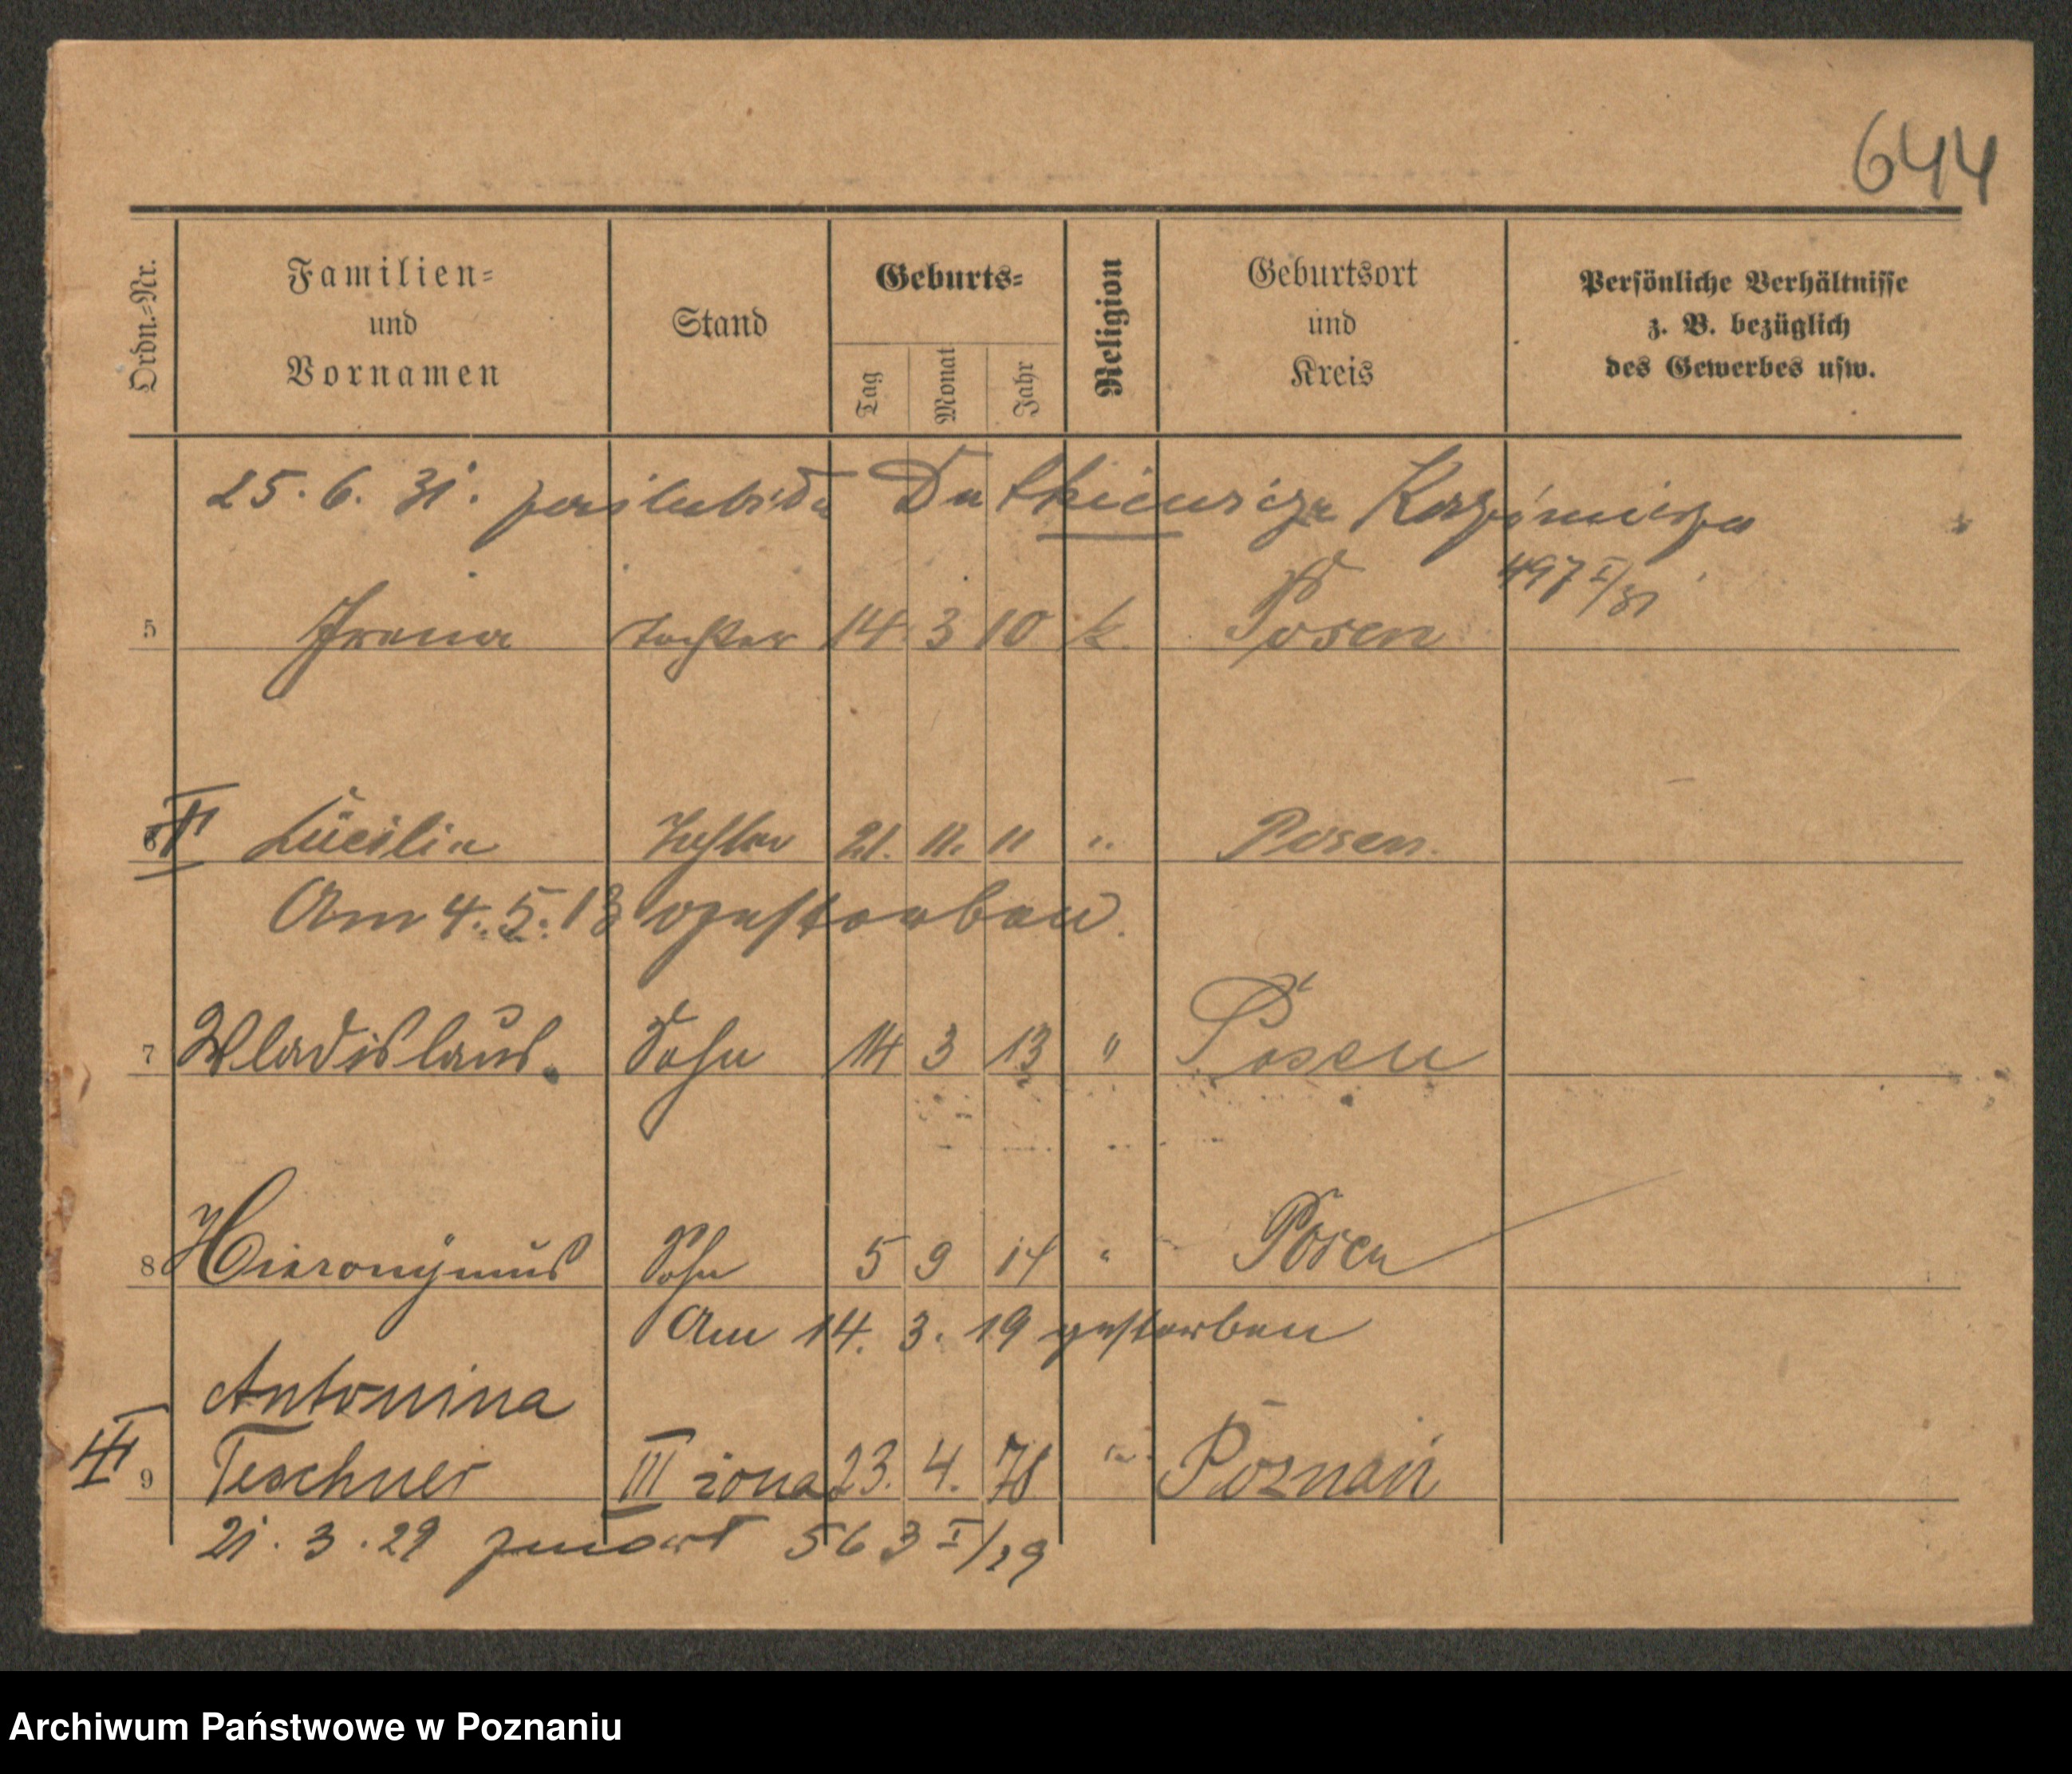 644
Ordn.-Nr.
Familien-
und
Vornamen
Stand
Geburts-
Tag
Monat
Jahr
Religion
Geburtsort
und
Kreis
Persönliche Verhältnisse
z. B. bezüglich
des Gewerbes usw.
25. 6. 31. poślubiła Dutkiewicza Kazimierza
497 I/31
5 Irena Tochter 14. 3 10 k. Posen
6 II Lucilia Tochter 21. 11. 11 " Posen.
Am 4. 5. 13 gestorben.
7 Wladislaus. Sohn 14 3 13 " Posen
8 Hieronymus Sohn 5 9 14 " Posen
Am 14. 3. 19 gestorben
Antonina
III 9 Teschner III żona 23. 4. 78 " Poznań
21. 3. 29 zmarł 563 I/29
Archiwum Państwowe w Poznaniu